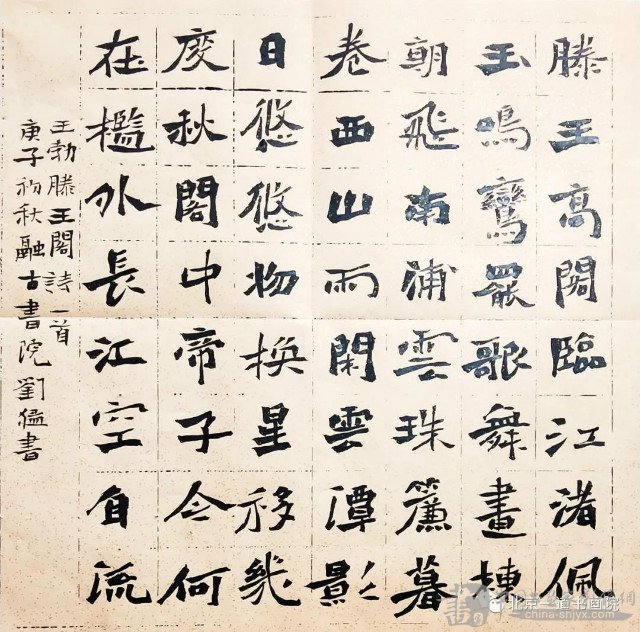 滕王高閣臨江渚佩
玉鳴鸞罷歌舞畫棟
朝飛南浦雲珠簾暮
卷西山雨閑雲潭影
日悠悠物換星移幾
度秋閣中帝子今何
在檻外長江空自流
王勃滕王閣詩一首
庚子初秋融古書院劉書
北京道书画院
www.china-shjyx.com